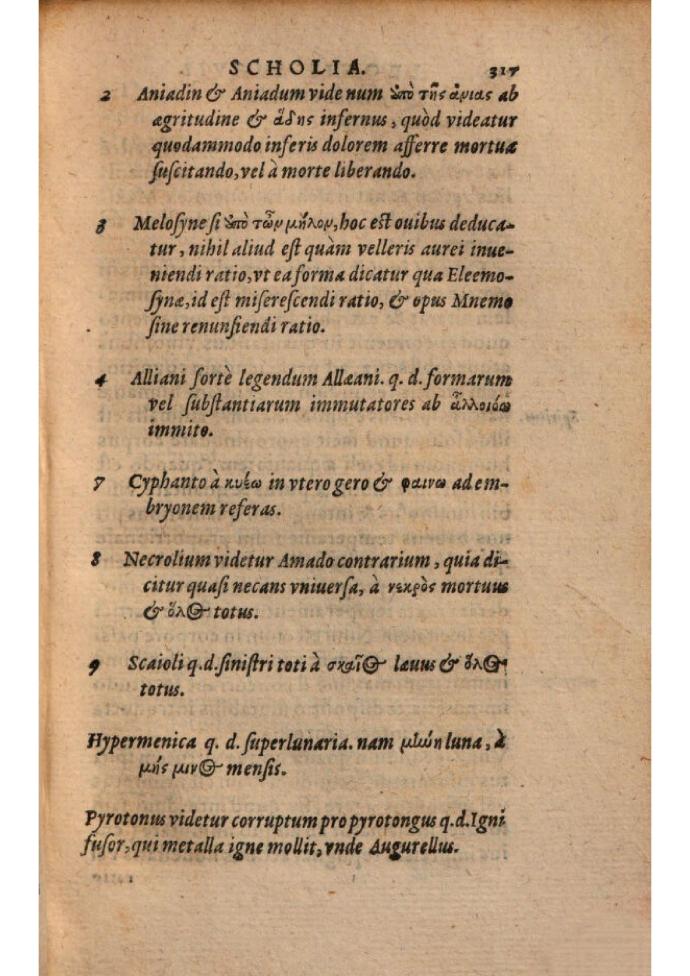 SCHOLIA. 317
2 Aniadin & Aniadum vide num ὑπὸ τῆς ἀνίας ab
ægritudine & ἅδης infernus, quòd videatur
quodammodo inferis dolorem afferre mortua
suscitando, vel à morte liberando.
3 Melosyne si ὑπὸ τῶν μήλον, hoc est ouibus deduca-
tur, nihil aliud est quàm velleris aurei inue-
niendi ratio, vt ea forma dicatur qua Eleemo-
synæ, id est miserescendi ratio, & opus Mnemo
sine renunsiendi ratio.
4 Alliani fortè legendum Allæani. q. d. formarum
vel substantiarum immutatores ab ἀλλοιόω
immito.
7 Cyphanto à κυέω in vtero gero & φαινω ad em-
bryonem referas.
8 Necrolium videtur Amado contrarium, quia di-
citur quasi necans vniuersa, à νεκρὸς mortuus
& ὅλος totus.
9 Scaioli q.d. sinistri toti à σκαῖος læuus & ὅλος
totus.
Hypermenica q. d. superlunaria. nam μήνη luna, à
μής μινος mensis.
Pyrotonus videtur corruptum pro pyrotongus q.d. Igni
fusor, qui metalla igne mollit, vnde Augurellus.